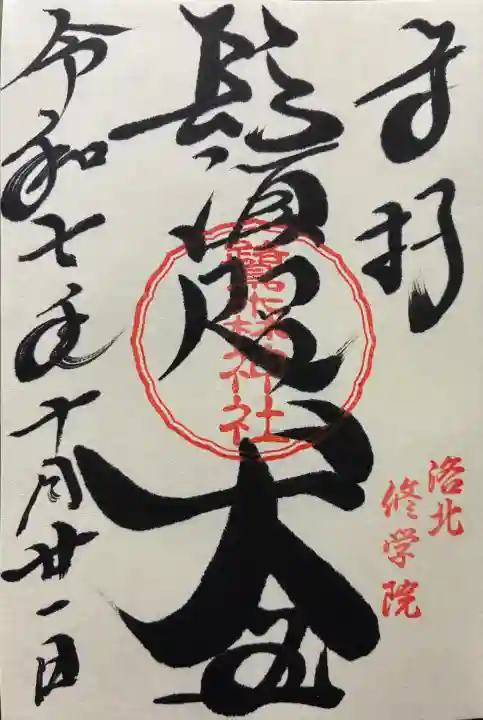 奉拝
洛北
修学院
鷺森神社
令和七年十月廿一日